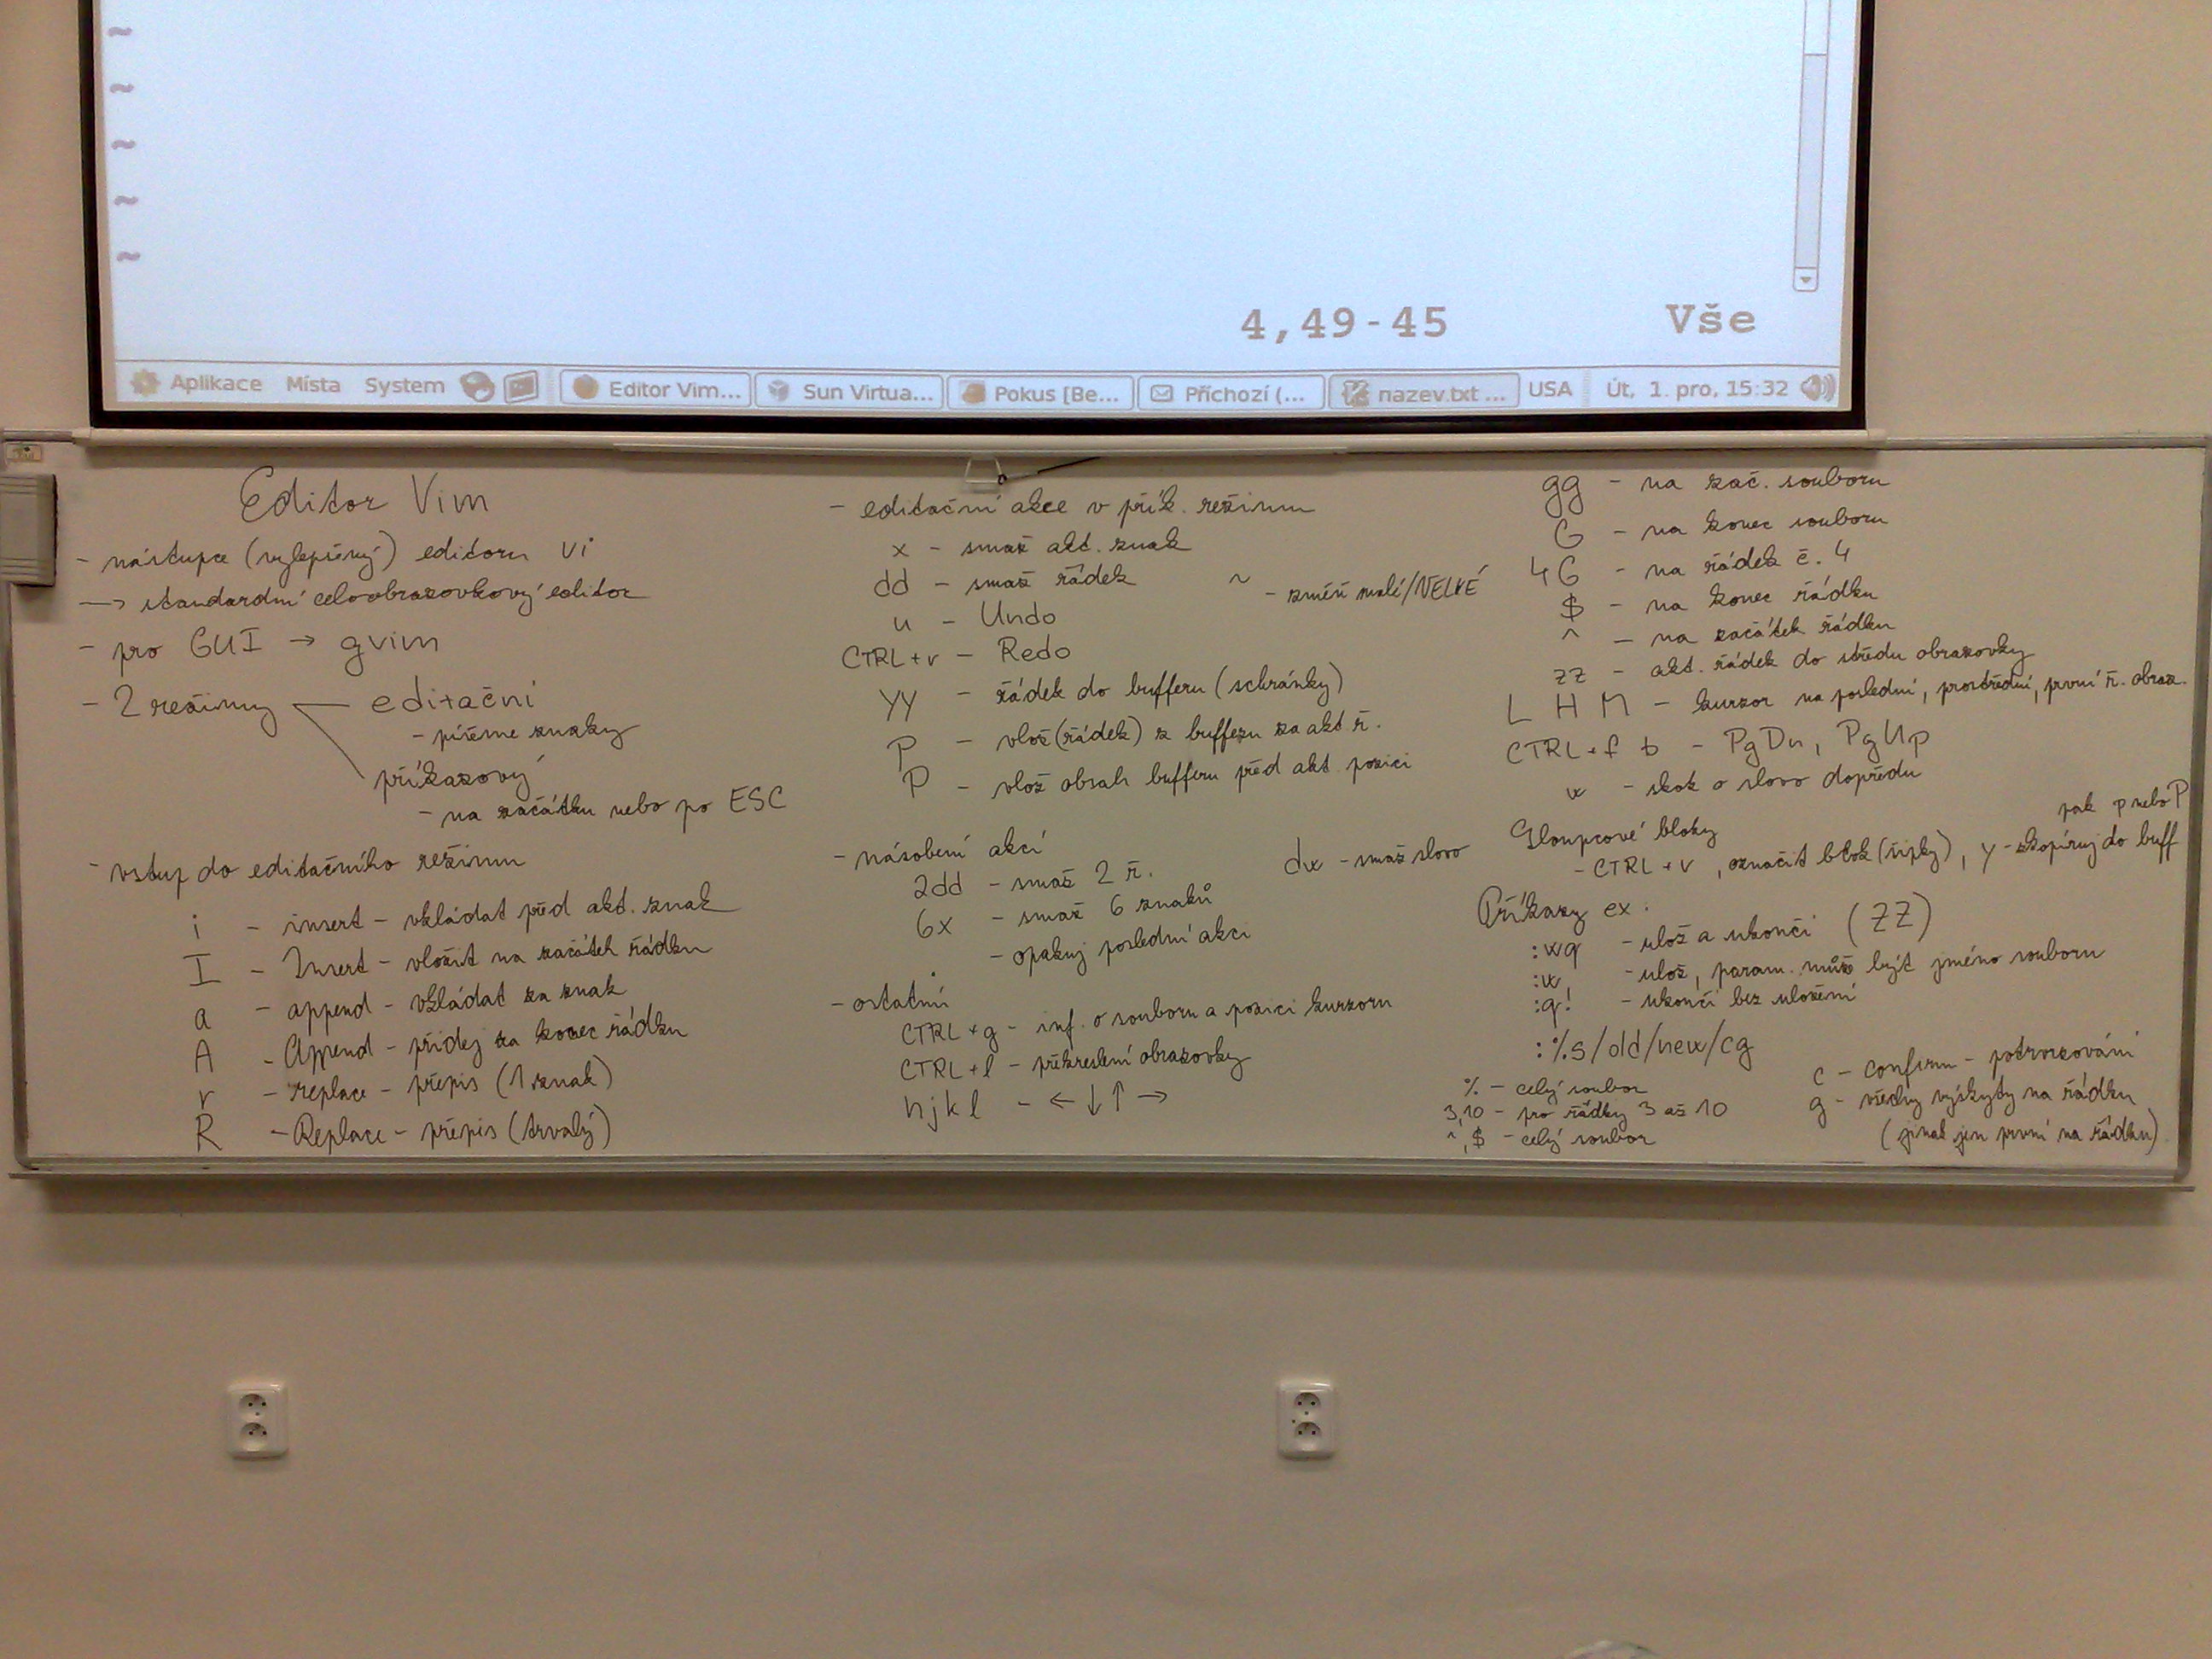 ~
~
~
~
~
4,49-45 Vše
Aplikace Místa System Editor Vim... Sun Virtua... Pokus [Be... Příchozí (... nazev.txt ... USA Út, 1. pro, 15:32
Editor Vim
- nástupce (vylepšený) editoru vi
-> standardní celoobrazovkový editor
- pro GUI → gvim
- 2 režimy editační
- píšeme znaky
příkazový
- na začátku nebo po ESC
- vstup do editačního režimu
i - insert - vkládat před akt. znak
I - Insert - vložit na začátek řádku
a - append - vkládat za znak
A - Append - přidej za konec řádku
r - replace - přepis (1 znak)
R - Replace - přepis (trvalý)
- editační akce v přík. režimu
x - smaž akt. znak
dd - smaž řádek
~ - změň malé/VELKÉ
u - Undo
CTRL+r - Redo
yy - řádek do bufferu (schránky)
p - vlož (řádek) z bufferu za akt ř.
P - vlož obsah bufferu před akt pozici
- násobení akcí
2dd - smaž 2 ř.
dw - smaž slovo
6x - smaž 6 znaků
. - opakuj poslední akci
- ostatní
CTRL+g - inf. o souboru a pozici kurzoru
CTRL+l - překreslení obrazovky
hjkl - ← ↓ ↑ →
gg - na zač. souboru
G - na konec souboru
4G - na řádek č. 4
$ - na konec řádku
^ - na začátek řádku
zz - akt. řádek do středu obrazovky
L H M - kurzor na poslední, prostřední, první ř. obraz.
CTRL+f b - PgDn, PgUp
w - skok o slovo dopředu
Sloupcové bloky
- CTRL+v, označit blok (šipky), y - zkopíruj do buff
pak p nebo P
Příkazy ex:
:wq - ulož a ukonči (ZZ)
:w - ulož, param. může být jméno souboru
:q! - ukonči bez uložení
:%s/old/new/cg
% - celý soubor
3,10 - pro řádky 3 až 10
^,$ - celý soubor
c - confirm - potvrzování
g - všechny výskyty na řádku
(jinak jen první na řádku)